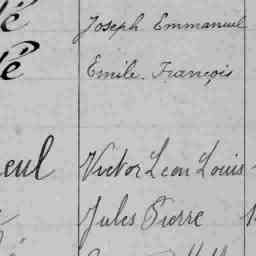 é Joseph Emmanuel
é Emile. François
eul Victor Leon Louis
Jules Pierre